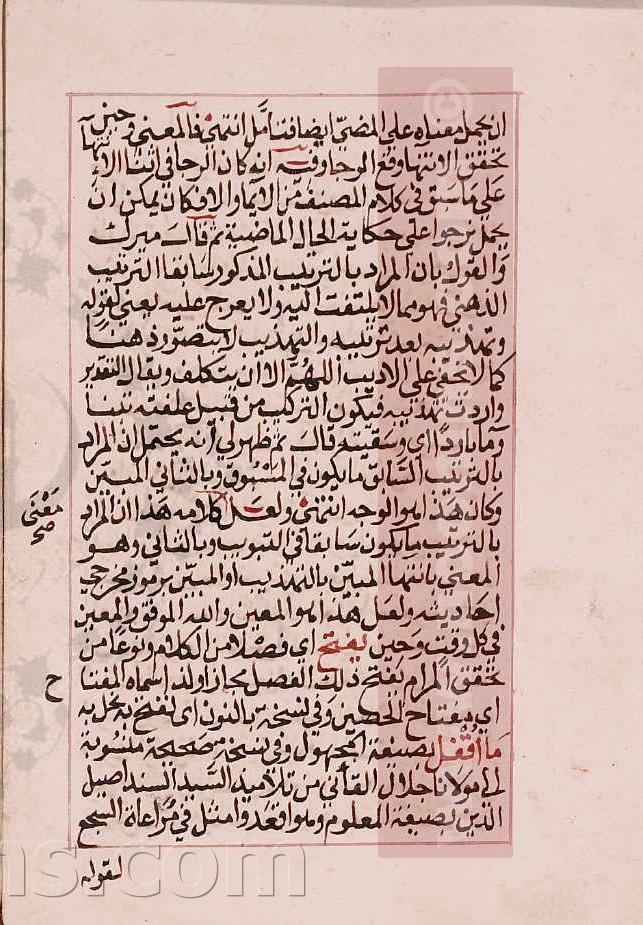 ان يحمل معناه على المضي ايضا فتأمل انتهى فالمعنى وحين
تحقق الانتها وقع الرجا وفيه انه كان الرجا في اثنا الانتهآء
على ما سبق في كلام المصنف من الايما والا فكان يمكن ان
يحمل نرجوا على حكاية الحال الماضية ثم قال ميرك
والقول بان المراد بالترتيب المذكور سابقا الترتيب
الذهني فهو مما لا يلتفت اليه ولا يعرج عليه يعني لقوله
وتهذيبه بعد ترتيبه والتهذيب لا يتصور ذهنا
كما لا يخفى على الاديب اللهم الا ان يتكلف ويقال التقدير
واردت تهذيبه فيكون التركيب من قبيل علفته تبنا
وماء باردا اي وسقيته قال ثم ظهر لي أنه يحتمل ان المراد
بالترتيب السابق ما يكون في المسبوق وبالثاني المبين
وكان هذا هو الوجه انتهى ولعل كلامه هذا ان المراد
بالترتيب ما يكون سابقا في التبويب وبالثاني وهو
المعني بانتها المبين بالتهذيب او المبين برموز مخرجي
احاديثه ولعل هذا هو المعين والله الموفق والمعين
في كل وقت وحين يفتح اي فصلا من الكلام ونوعا من
تحقق المرام يفتح ذلك الفصل مجازا ولذا سماه المفتا ح
اي مفتاح الحصين وفي نسخة بالنون اي نفتح به نحل به
ما اقفل بصيغة المجهول وفي نسخة صحيحة منسوبة
الى مولانا جلال القائني من تلاميذ السيد السند اصيل
الدين بصيغة المعلوم وهو اقعد وامثل في مراعاة السجع
لقوله
معنى
صح
ns.com